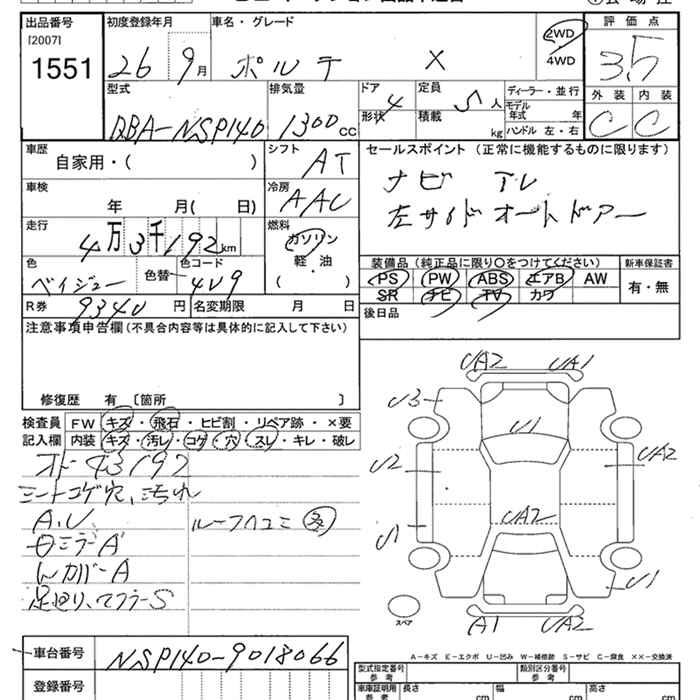 出品番号
[2007]
1551
初度登録年月
26 9月
車名・グレード
ポルテ X
2WD
4WD
評価点
3.5
外装 内装
C C
型式
DBA-NSP140
排気量
1300cc
ドア
4
形状
定員
5人
積載
kg
ディーラー・並行
モデル年式 年
ハンドル 左・右
車歴
自家用・( )
シフト
AT
セールスポイント (正常に機能するものに限ります)
ナビ TV
左サイドオートドアー
車検
年 月( 日)
冷房
AAC
走行
4万3千192km
燃料
ガソリン
軽・油
( )
色
ベイジュー
色替
色コード
4U9
装備品(純正品に限り○をつけてください)
PS PW ABS エアB AW
SR ナビ TV カワ
新車保証書
有・無
R券
9340円
名変期限 月 日
後日品
注意事項申告欄(不具合内容等は具体的に記入して下さい)
修復歴 有 〔箇所 〕
検査員記入欄
FW キズ・飛石・ヒビ割・リペア跡・×要
内装 キズ・汚レ・コゲ・穴・スレ・キレ・破レ
オドー43192
シートコゲ穴、汚れ
A.U.
ルーフヘコミ
ミラーA
WカバーA
足回り、マフラーS
UA2 UA1
U3
U1
U2
UA2
UA2
U1
U1
A1 UA2
スペア
A-キズ E-エクボ U-凹み W-補修跡 S-サビ C-腐食 ××-交換済
車台番号
NSP140-9018066
登録番号
型式指定番号
参考
類別区分番号
参考
車庫証明用
参考
長さ cm
幅 cm
高さ cm